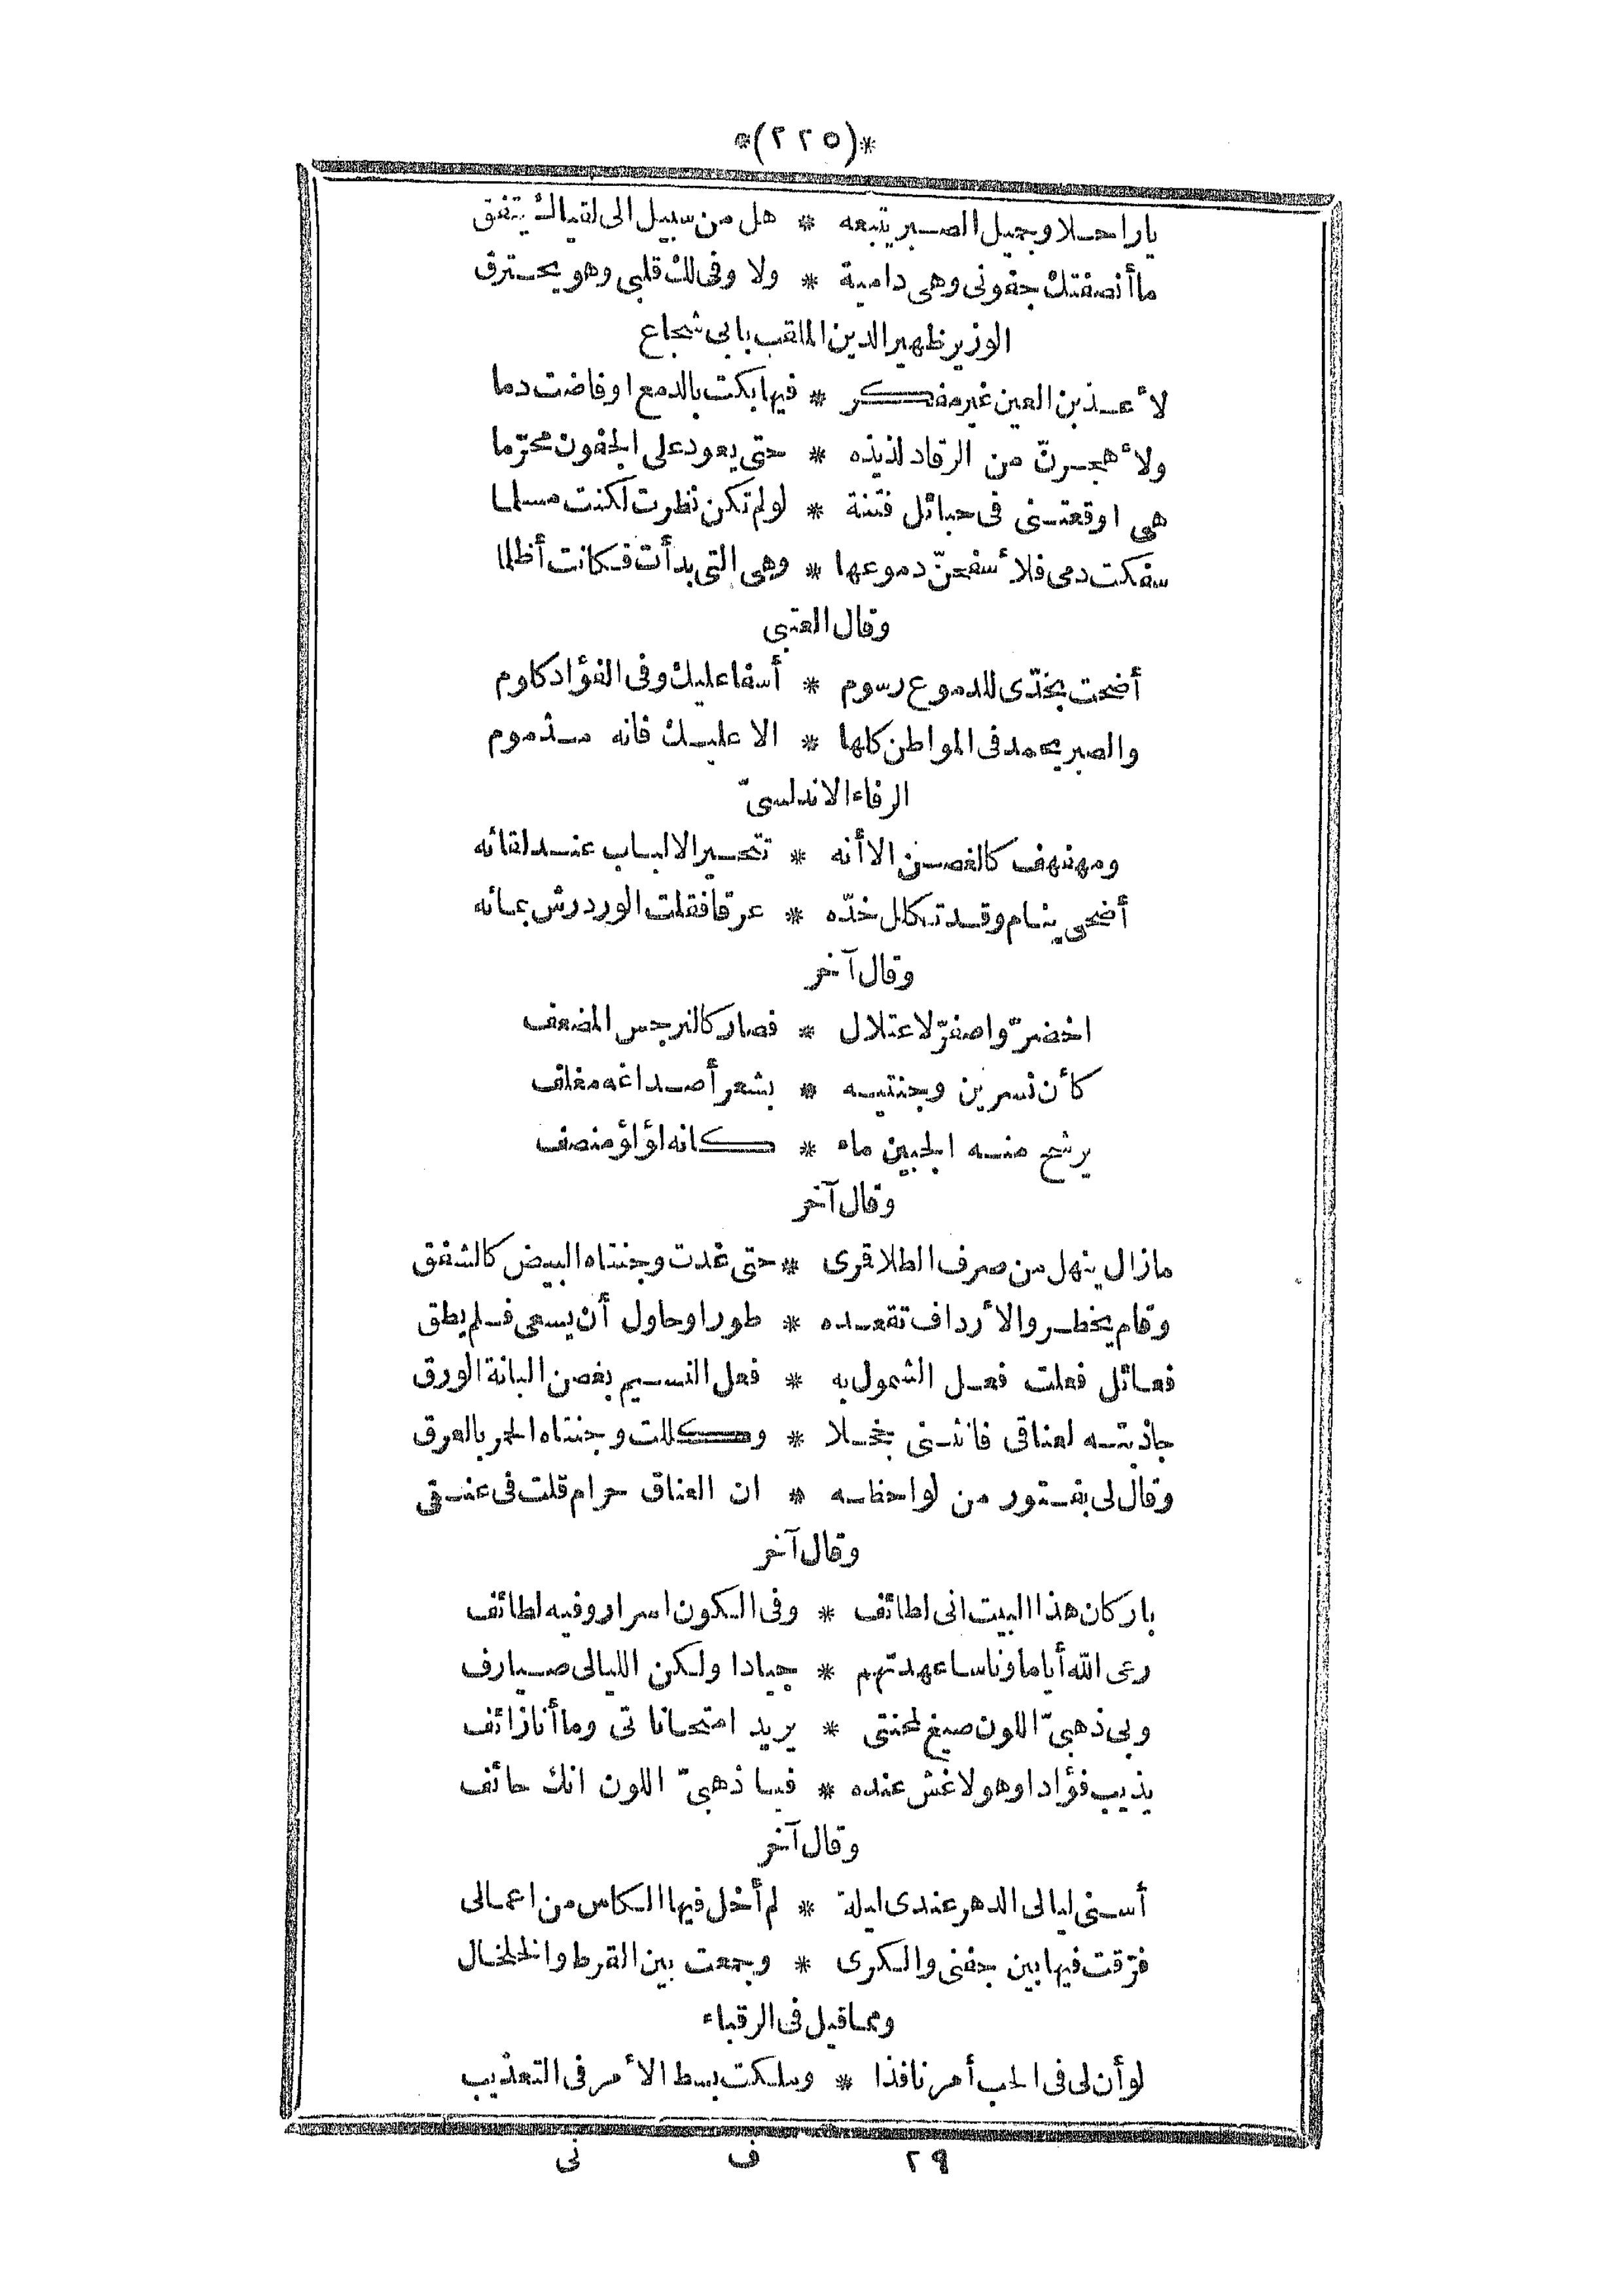 *(٢٢٥)*
يا راحلا وجميل الصبر يتبعه * هل من سبيل الى لقياك يتفق
ما أنصفتك جفونى وهى دامية * ولا وفى لك قلبى وهو يحترق
الوزير ظهير الدين الملقب بابى شجاع
لأعذبن العين غير مفكر * فيها بكت بالدمع او فاضت دما
ولأهجرنّ من الرقاد لذيذه * حتى يعود على الجفون محرّما
هى اوقعتنى فى حبائل فتنة * لو لم تكن نظرت لكنت مسلما
سفكت دمى فلأسفحنّ دموعها * وهى التى بدأت فكانت أظلما
وقال العتبى
أضحت بخدّى للدموع رسوم * أسفا عليك وفى الفؤاد كلوم
والصبر يحمد فى المواطن كلها * الا عليك فانه مذموم
الرفاء الاندلسىّ
ومهفهف كالغصن الا أنه * تتحير الالباب عند لقائه
أضحى ينام وقد تكلل خدّه * عرقا فقلت الورد رش بمائه
وقال آخر
اخضرّ واصفرّ لاعتلال * فصار كالنرجس المضعف
كأن نسرين وجنتيه * بشعر أصداغه مغلف
يرشح منه الجبين ماء * كانه لؤلؤ منصف
وقال آخر
مازال ينهل من صرف الطلا قرى * حتى غدت وجنتاه البيض كالشفق
وقام يخطر والأرداف تقعده * طورا وحاول أن يسعى فلم يطق
فعائل فعلت فعل الشمول به * فعل النسيم بغصن البانة الورق
جاذبته لعناقى فانثنى خجلا * وكللت وجنتاه الحمر بالعرق
وقال لى بفتور من لواحظه * ان العناق حرام قلت فى عنقى
وقال آخر
بار كان هذا البيت انى لطائف * وفى الكون اسرار وفيه لطائف
رعى الله أياما وناسا عهدتهم * جيادا ولكن الليالى صيارف
وبى ذهبىّ اللون صيغ لمحنتى * يريد امتحاناتى وما أنا زائف
يذيب فؤادا وهو لا غش عنده * فيا ذهبىّ اللون انك حائف
وقال آخر
أسنى ليالى الدهر عندى ليلة * لم أخل فيها الكاس من اعمالى
فرّقت فيها بين جفنى والكرى * وجمعت بين القرط والخلخال
ومما قيل فى الرقباء
لو أن لى فى الحب أمر نافذا * وملكت بسط الأمر فى التعذيب
٢٩ ف نى